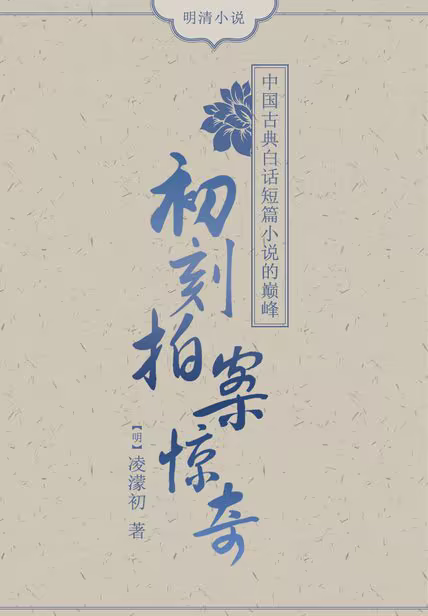 明清小说
中国古典白话短篇小说的巅峰
初刻拍案惊奇
【明】凌濛初 著